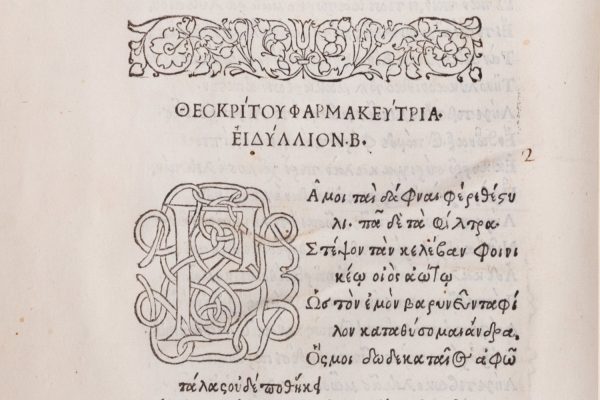 ΘΕΟΚΡΙ´ΤΟΥ ΦΑΡΜΑΚΕΥ´ΤΡΙΑ·
ΕἸΔΥ´ΛΛΙΟΝ·Β·
2
Πᾶ μοι ταὶ δάφναι φέρε θέςυ
λι· πᾶ δὲ τὰ φίλτρα·
Στέψον τὰν κελέβαν φοινι
κέῳ οἰὸς ἀώτῳ
Ὡς τὸν ἐμὸν βαρυνεῦντα φί
λον καταθύσομαι ἄνδρα.
Ὅς μοι δωδεκαταῖος ἀφ᾽ ὧ
τάλας οὐδέποθ᾽ ἥκει